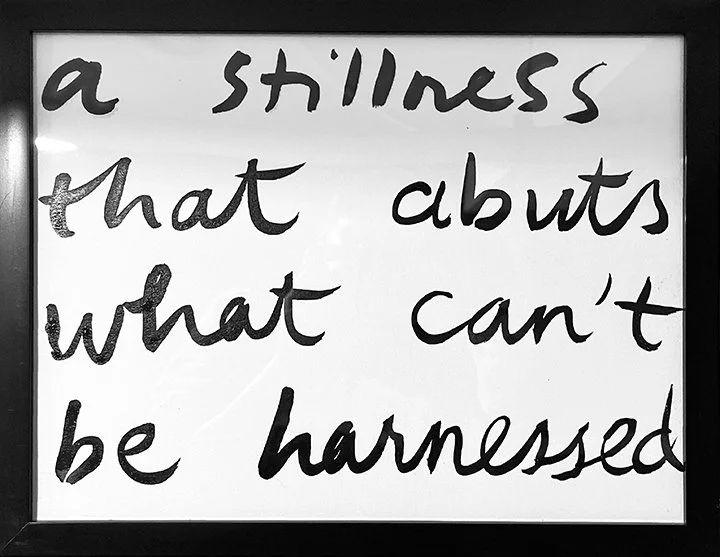 a stillness
that abuts
what can't
be harnessed